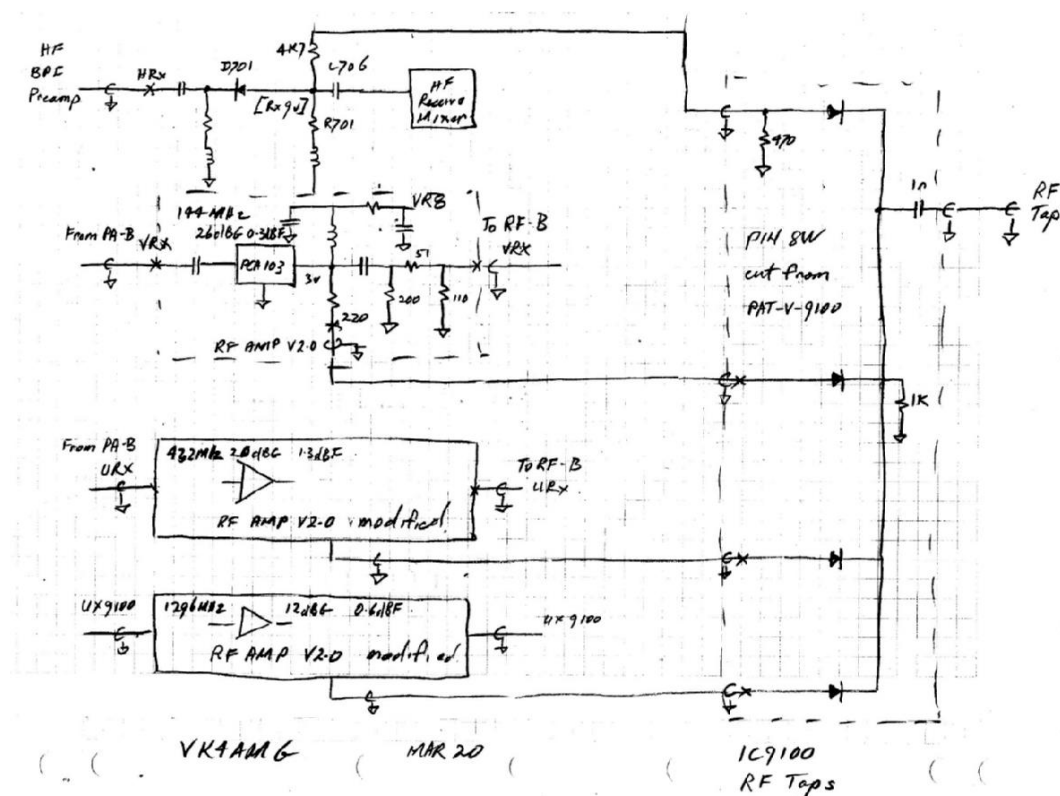 HF
BPF
Preamp
HRx
D701
4K7
C706
[Rx9v]
R701
HF
Receive
Mixer
470
1n
RF
Tap
144MHz
26dBG 0.3dBF
VR8
From PA-B
VRX
PGA103
3v
51
200
110
To RF-B
VRX
220
RF AMP V2.0
PIN SW
cut from
PAT-V-9100
1K
From PA-B
URX
432MHz 20dBG 1.3dBF
RF AMP V2.0 modified
To RF-B
URX
UX9100
1296MHz 12dBG 0.6dBF
RF AMP V2.0 modified
UX9100
VK4AMG MAR 20 IC9100
RF Taps